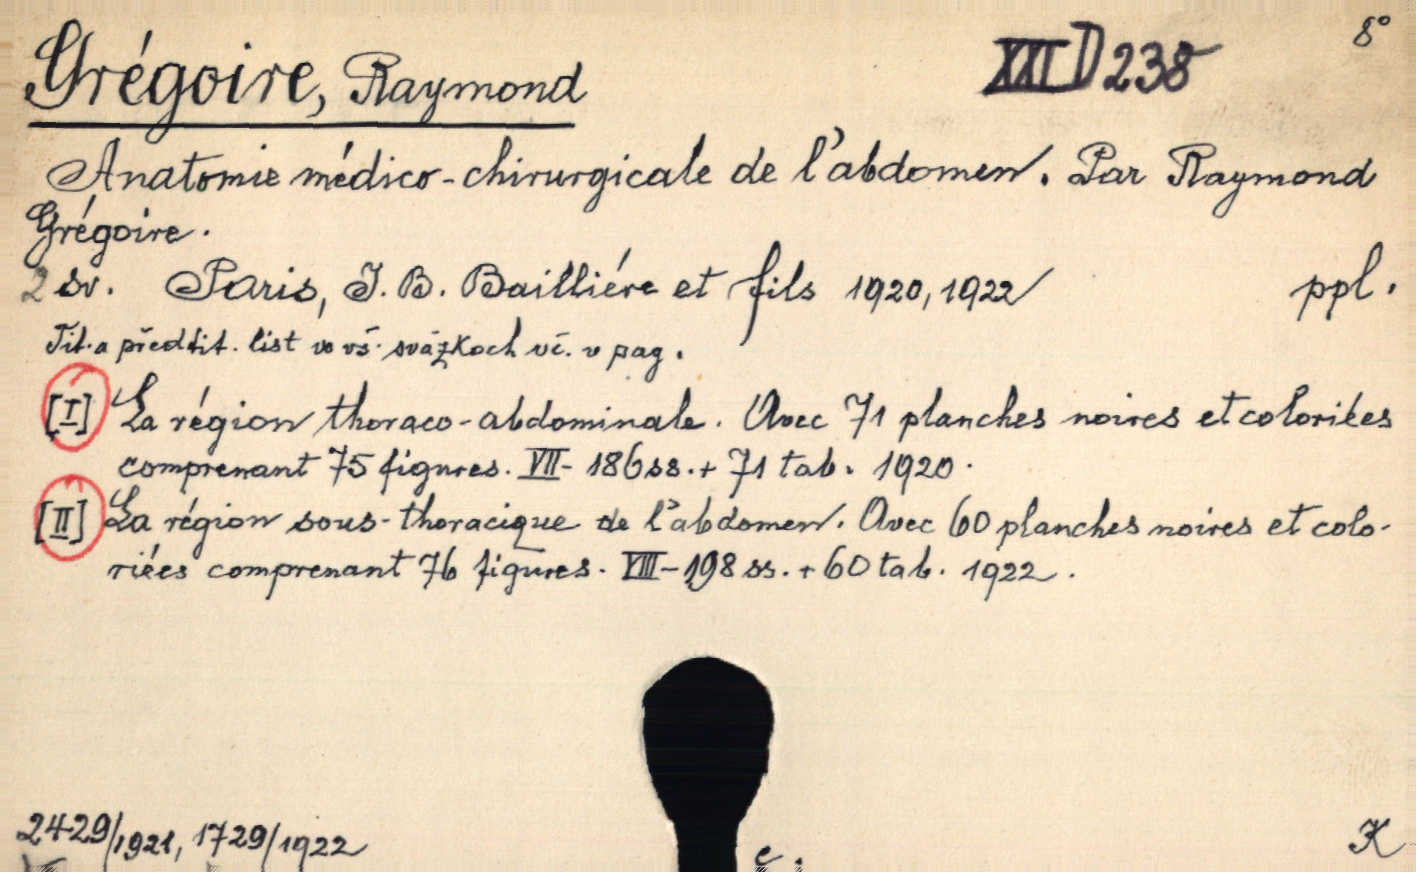 Grégoire, Raymond XXI D 238 8°
Anatomie médico-chirurgicale de l'abdomen. Par Raymond
Grégoire.
2 sv. Paris, J. B. Bailliére et fils 1920, 1922 ppl.
Tit. a předtit. list vo vš. sväzkoch vč. v pag.
[I] La région thoraco-abdominale. Avec 71 planches noires et coloriées
comprenant 75 figures. VII-186 ss. + 71 tab. 1920.
[II] La région sous-thoracique de l'abdomen. Avec 60 planches noires et colo-
riées comprenant 76 figures. VIII-198 ss. + 60 tab. 1922.
2429/1921, 1729/1922 K
c.